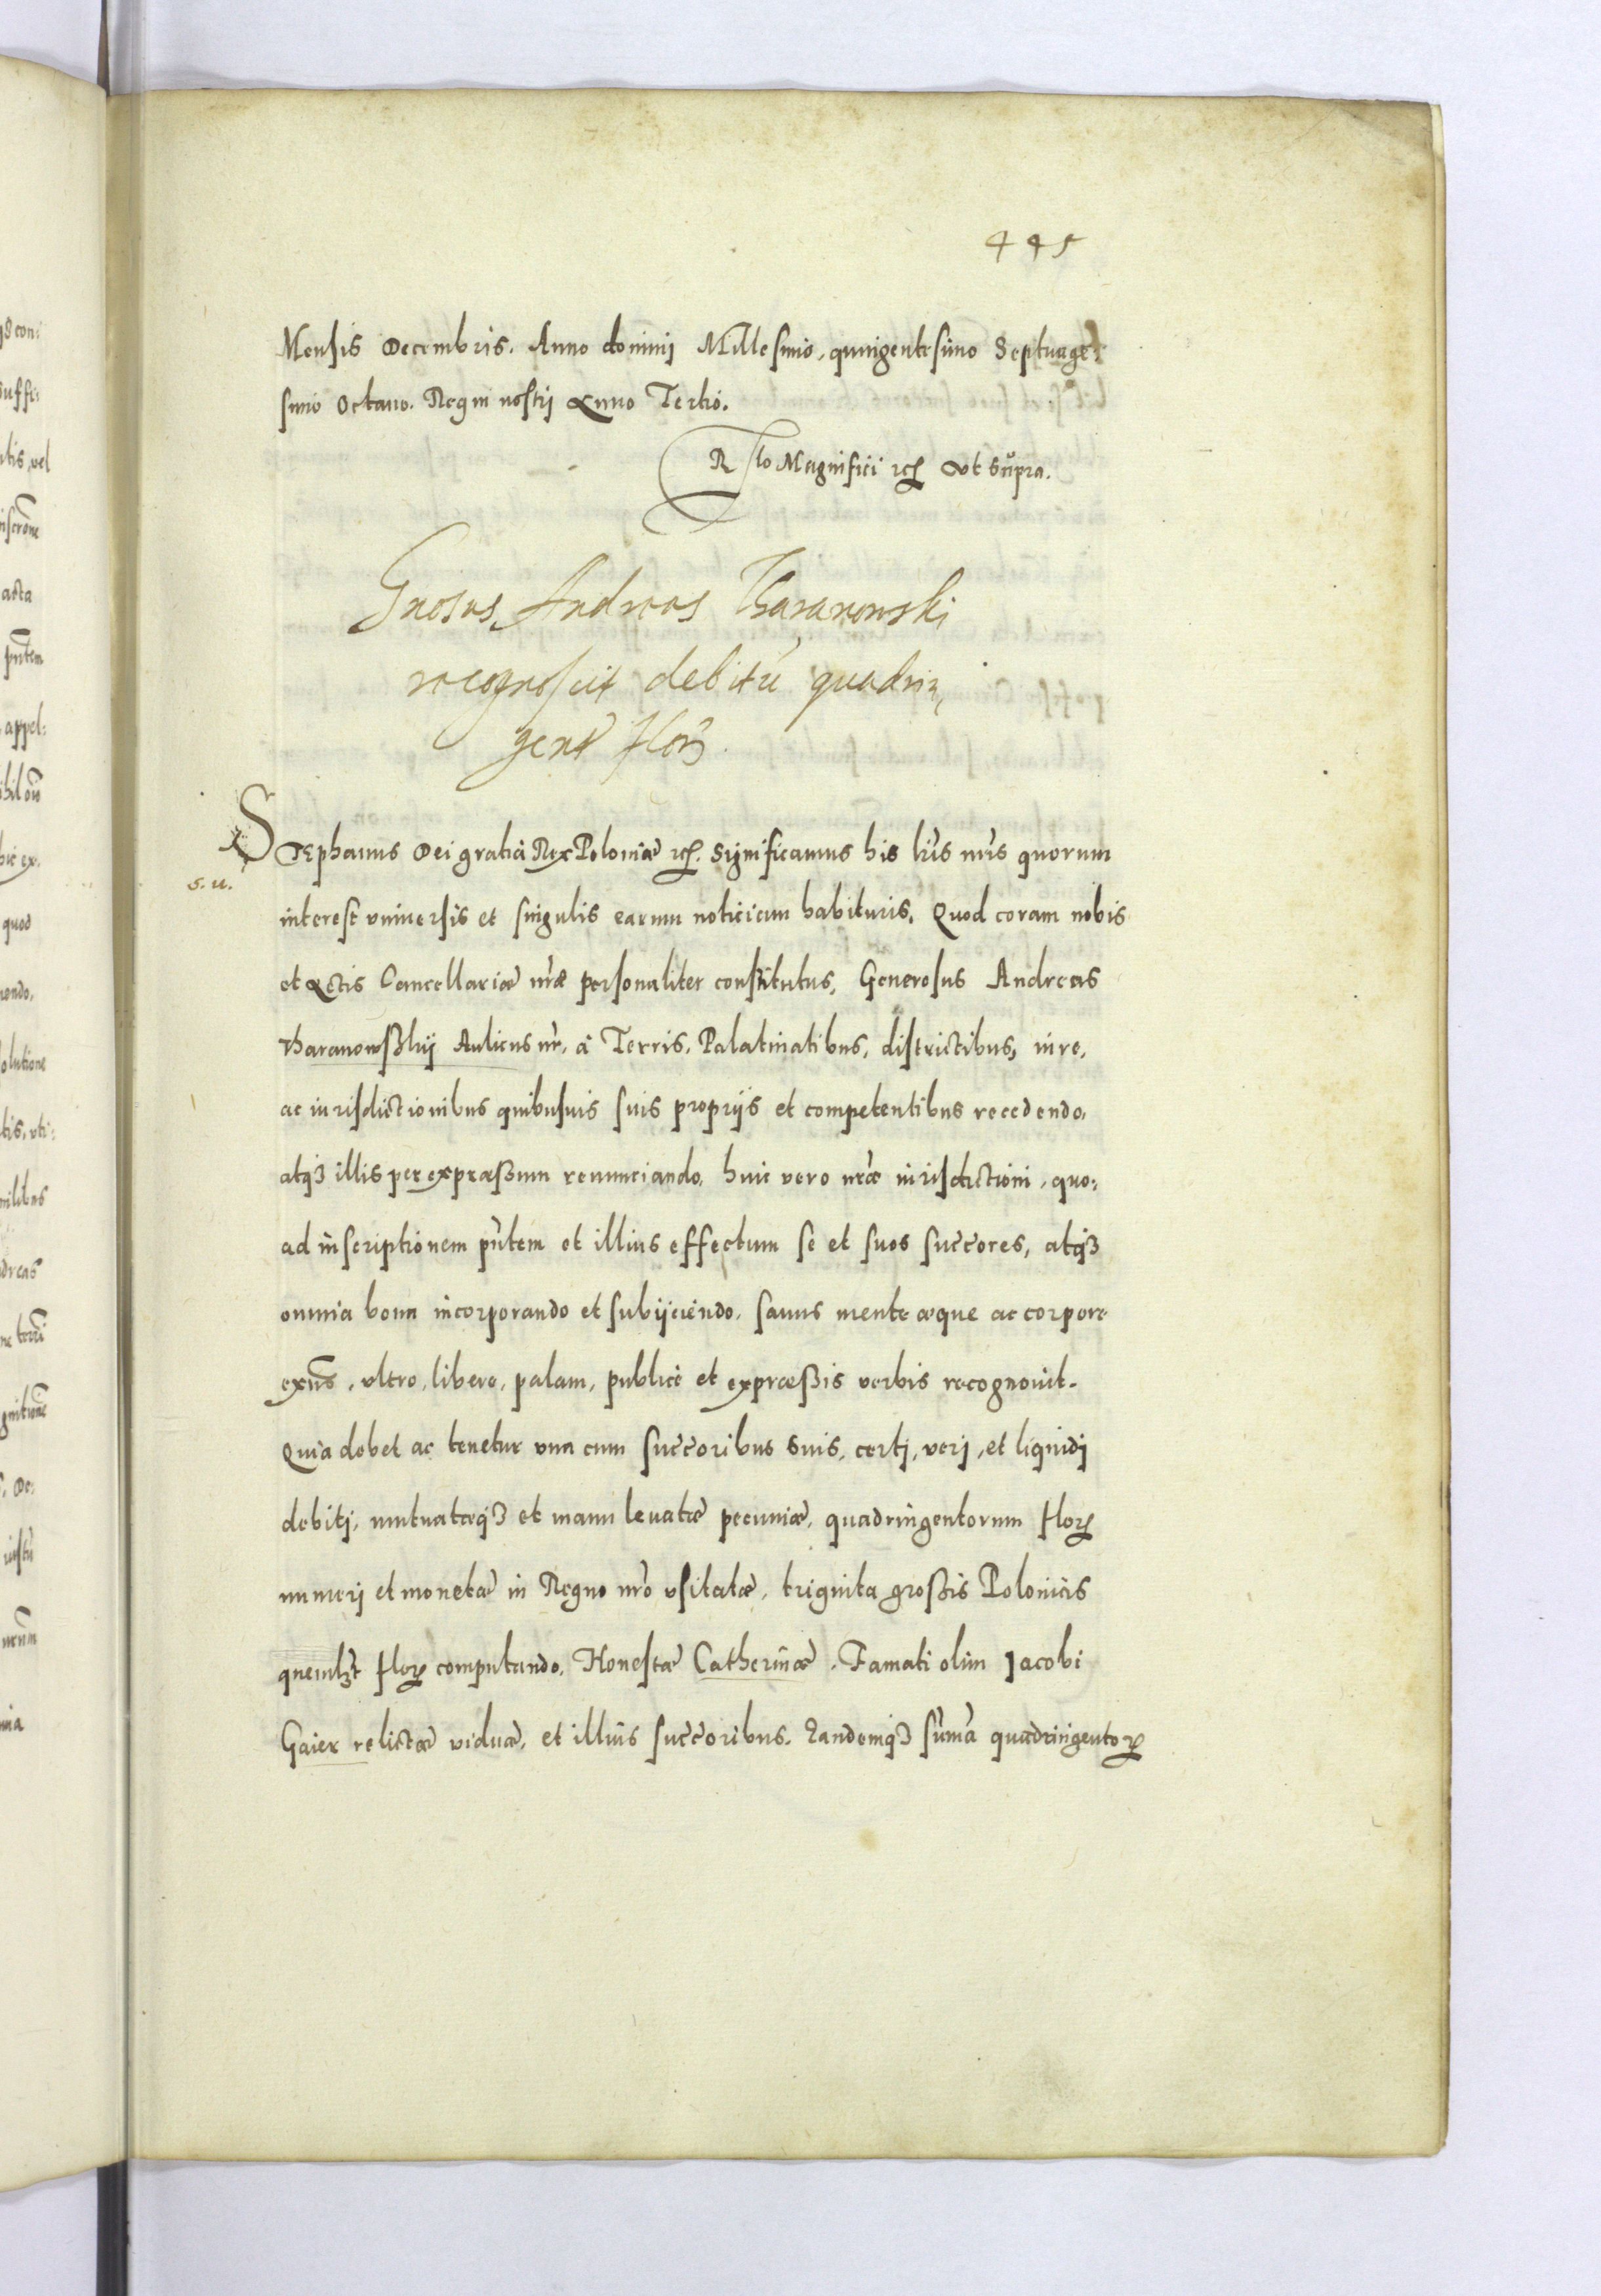 445
Mensis Decembris. Anno dominij Millesimo, quingentesimo Septuage:
simo Octauo. Regni nostrj Anno Tertio.
Rlo Magnifici rcɮ Vt supra.
Gnosus Andreas Tharanowski
recognoscit debitū quadrin,
gent Flor̄.
Stephanus Dei gratia Rex Poloniæ rcɮ. Significamus his lr̄is nr̄is quorum
s. u.
interest vniuersis et singulis earum noticiam habituris, Quod coram nobis
et Actis Cancellariæ nr̄æ personaliter constitutus, Generosus Andreas
Tharanowßkij Aulicus nr̄, à Terris, Palatinatibus, districtibus, iure,
ac iurisdictionibus quibusuis suis proprijs et competentibus recedendo,
atqꝫ illis per expræßum renunciando, huic vero nr̄æ iurisdictioni, quo:
ad inscriptionem pn̄tem et illius effectum se et suos succ̄ores, atqꝫ
omnia bona incorporando et subijciendo, sanus mente æque ac corpore
exn̄s, vltro, libere, palam, publicè et expræßis verbis recognouit.
Quia debet ac tenetur vna cum succ̄oribus suis, certj, verj, et liquidj
debitj, mutuatæqꝫ et manu leuatæ pecuniæ, quadringentorum Floꝝ
numerj et monetæ in Regno nr̄o vsitatæ, triginta großis Polonicis
quemlꝫt Floꝝ computando, Honestæ Catherinæ, Famati olim Jacobi
Gaier relictæ viduæ, et illius succ̄oribus. Eandemqꝫ sum̄a quadringentoꝝ